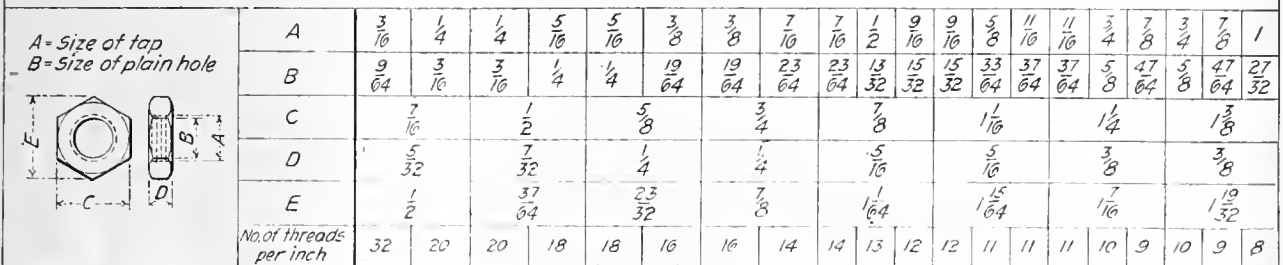 A=Size of tap
B=Size of plain hole
E
C
D
B
A
A 3/16 1/4 1/4 5/16 5/16 3/8 3/8 7/16 7/16 1/2 9/16 9/16 5/8 11/16 11/16 3/4 7/8 3/4 7/8 1
B 9/64 3/16 3/16 1/4 1/4 19/64 19/64 23/64 23/64 13/32 15/32 15/32 33/64 37/64 37/64 5/8 47/64 5/8 47/64 27/32
C 7/16 1/2 5/8 3/4 7/8 1 1/16 1 1/4 1 3/8
D 5/32 7/32 1/4 1/4 5/16 5/16 3/8 3/8
E 1/2 37/64 23/32 7/8 1 1/64 1 15/64 1 7/16 1 19/32
No. of threads
per inch 32 20 20 18 18 16 16 14 14 13 12 12 11 11 11 10 9 10 9 8